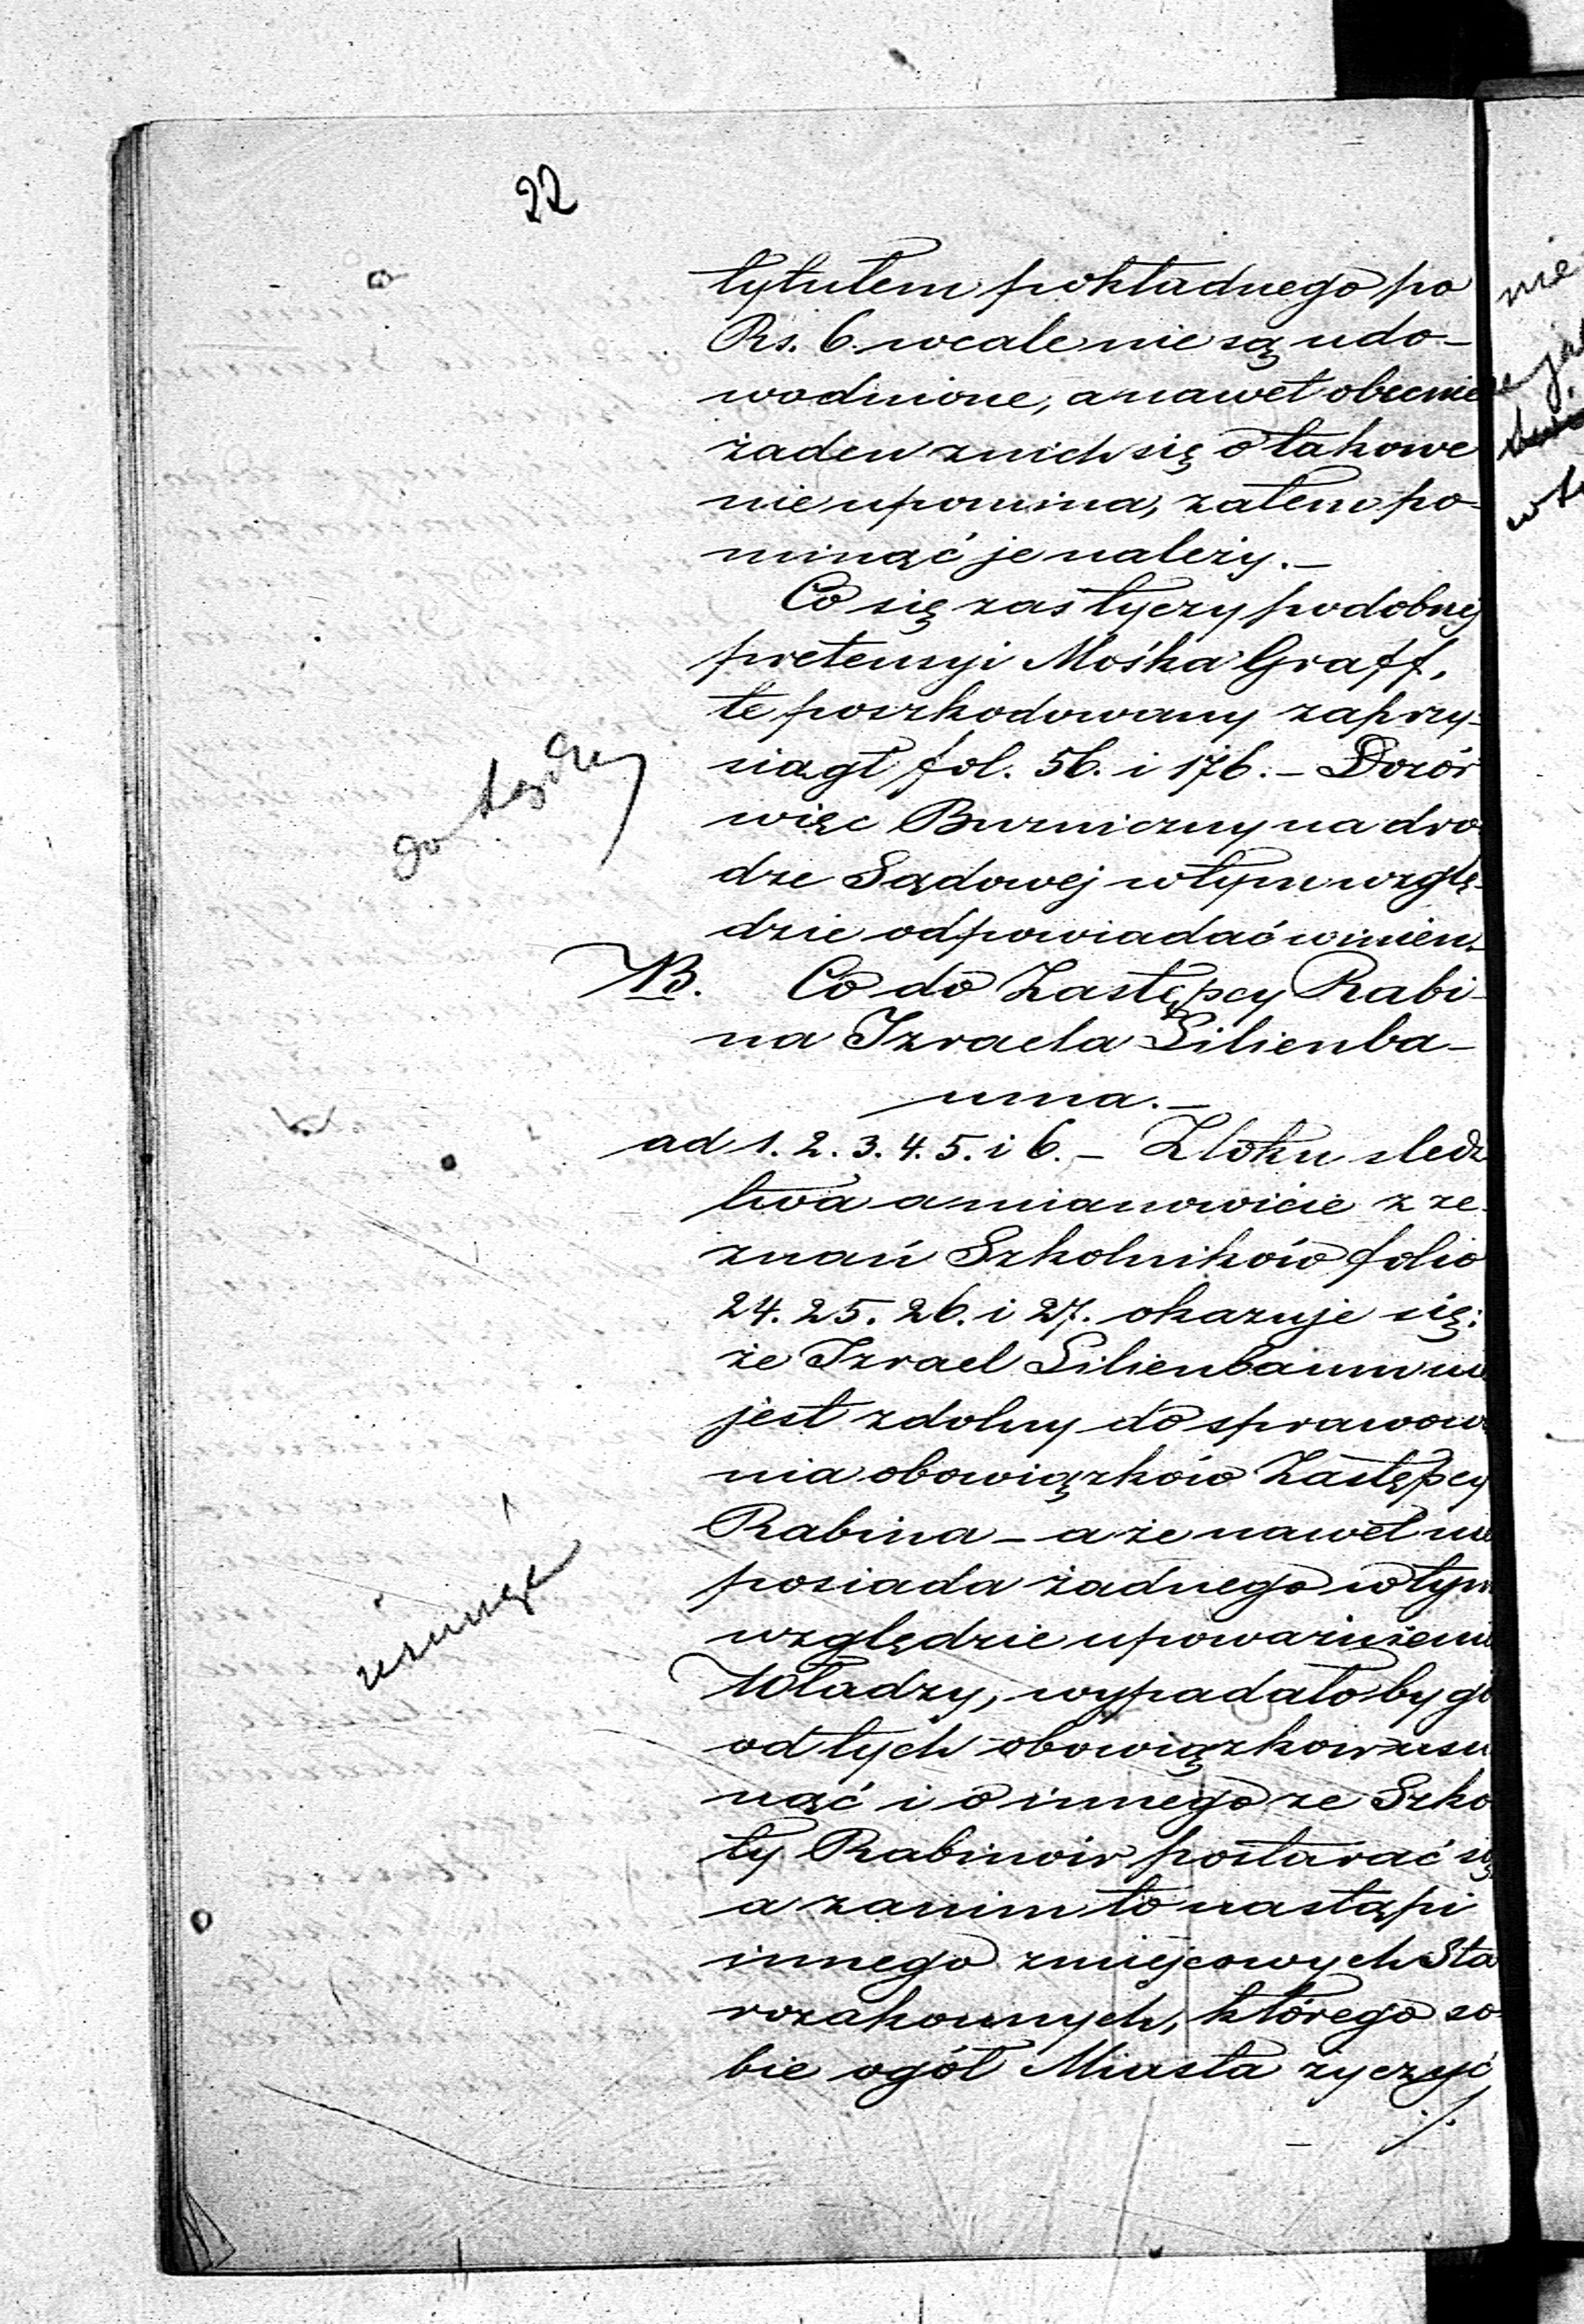 22
tytułem pokładnego po
Rs. 6. wcale nie są udo-
wodnione, a nawet obecnie
żaden z nich się o takowe
nie upomina, zatem po-
minąć je należy.-
Co się zaś tyczy podobnej
pretensyi Mośka Graff,
te poszkodowany zaprzy-
siągł fol. 56. i 176. - Dozór
więc Bużniczny na dro
dze Sądowej w tym wzglę-
dzie odpowiadać winien.-
B. Co do Zastępcy Rabi-
na Izraela Lilienba-
uma.-
ad 1. 2. 3. 4. 5. i 6. - Z toku śledz
twa a mianowicie z ze-
znań Szkolników folio
24. 25. 26. i 27. okazuje się:
że Izrael Lilienbaum nie
jest zdolny do sprawowa
nia obowiązków Zastępcy
Rabina - a że nawet nie
posiada żadnego w tym
względzie upoważnieni
Władzy, wypadało by go
od tych obowiązków usu
nąć i o innego ze Szko
ły Rabinów postarać się
a zanim to nastąpi
innego z miejscowych Sta
rozakonnych, którego so-
bie ogół Miasta życzyć
./.
usunąć
nie